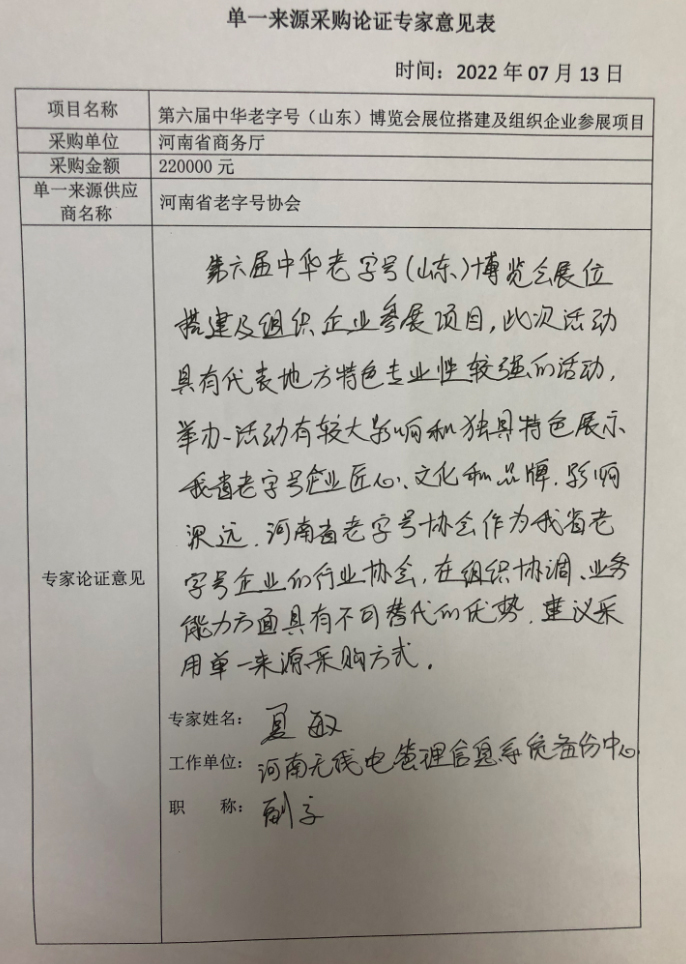 单一来源采购论证专家意见表
时间：2022 年 07 月 13 日
项目名称 第六届中华老字号（山东）博览会展位搭建及组织企业参展项目
采购单位 河南省商务厅
采购金额 220000 元
单一来源供应商名称 河南省老字号协会
专家论证意见
第六届中华老字号(山东)博览会展位
搭建及组织企业参展项目,此次活动
具有代表地方特色专业性较强的活动,
举办活动有较大影响和独具特色展示
我省老字号企业匠心、文化和品牌.影响
深远.河南省老字号协会作为我省老
字号企业的行业协会,在组织协调、业务
能力方面具有不可替代的优势.建议采
用单一来源采购方式.
专家姓名：夏敏
工作单位：河南无线电管理信息系统备份中心
职 称：副高